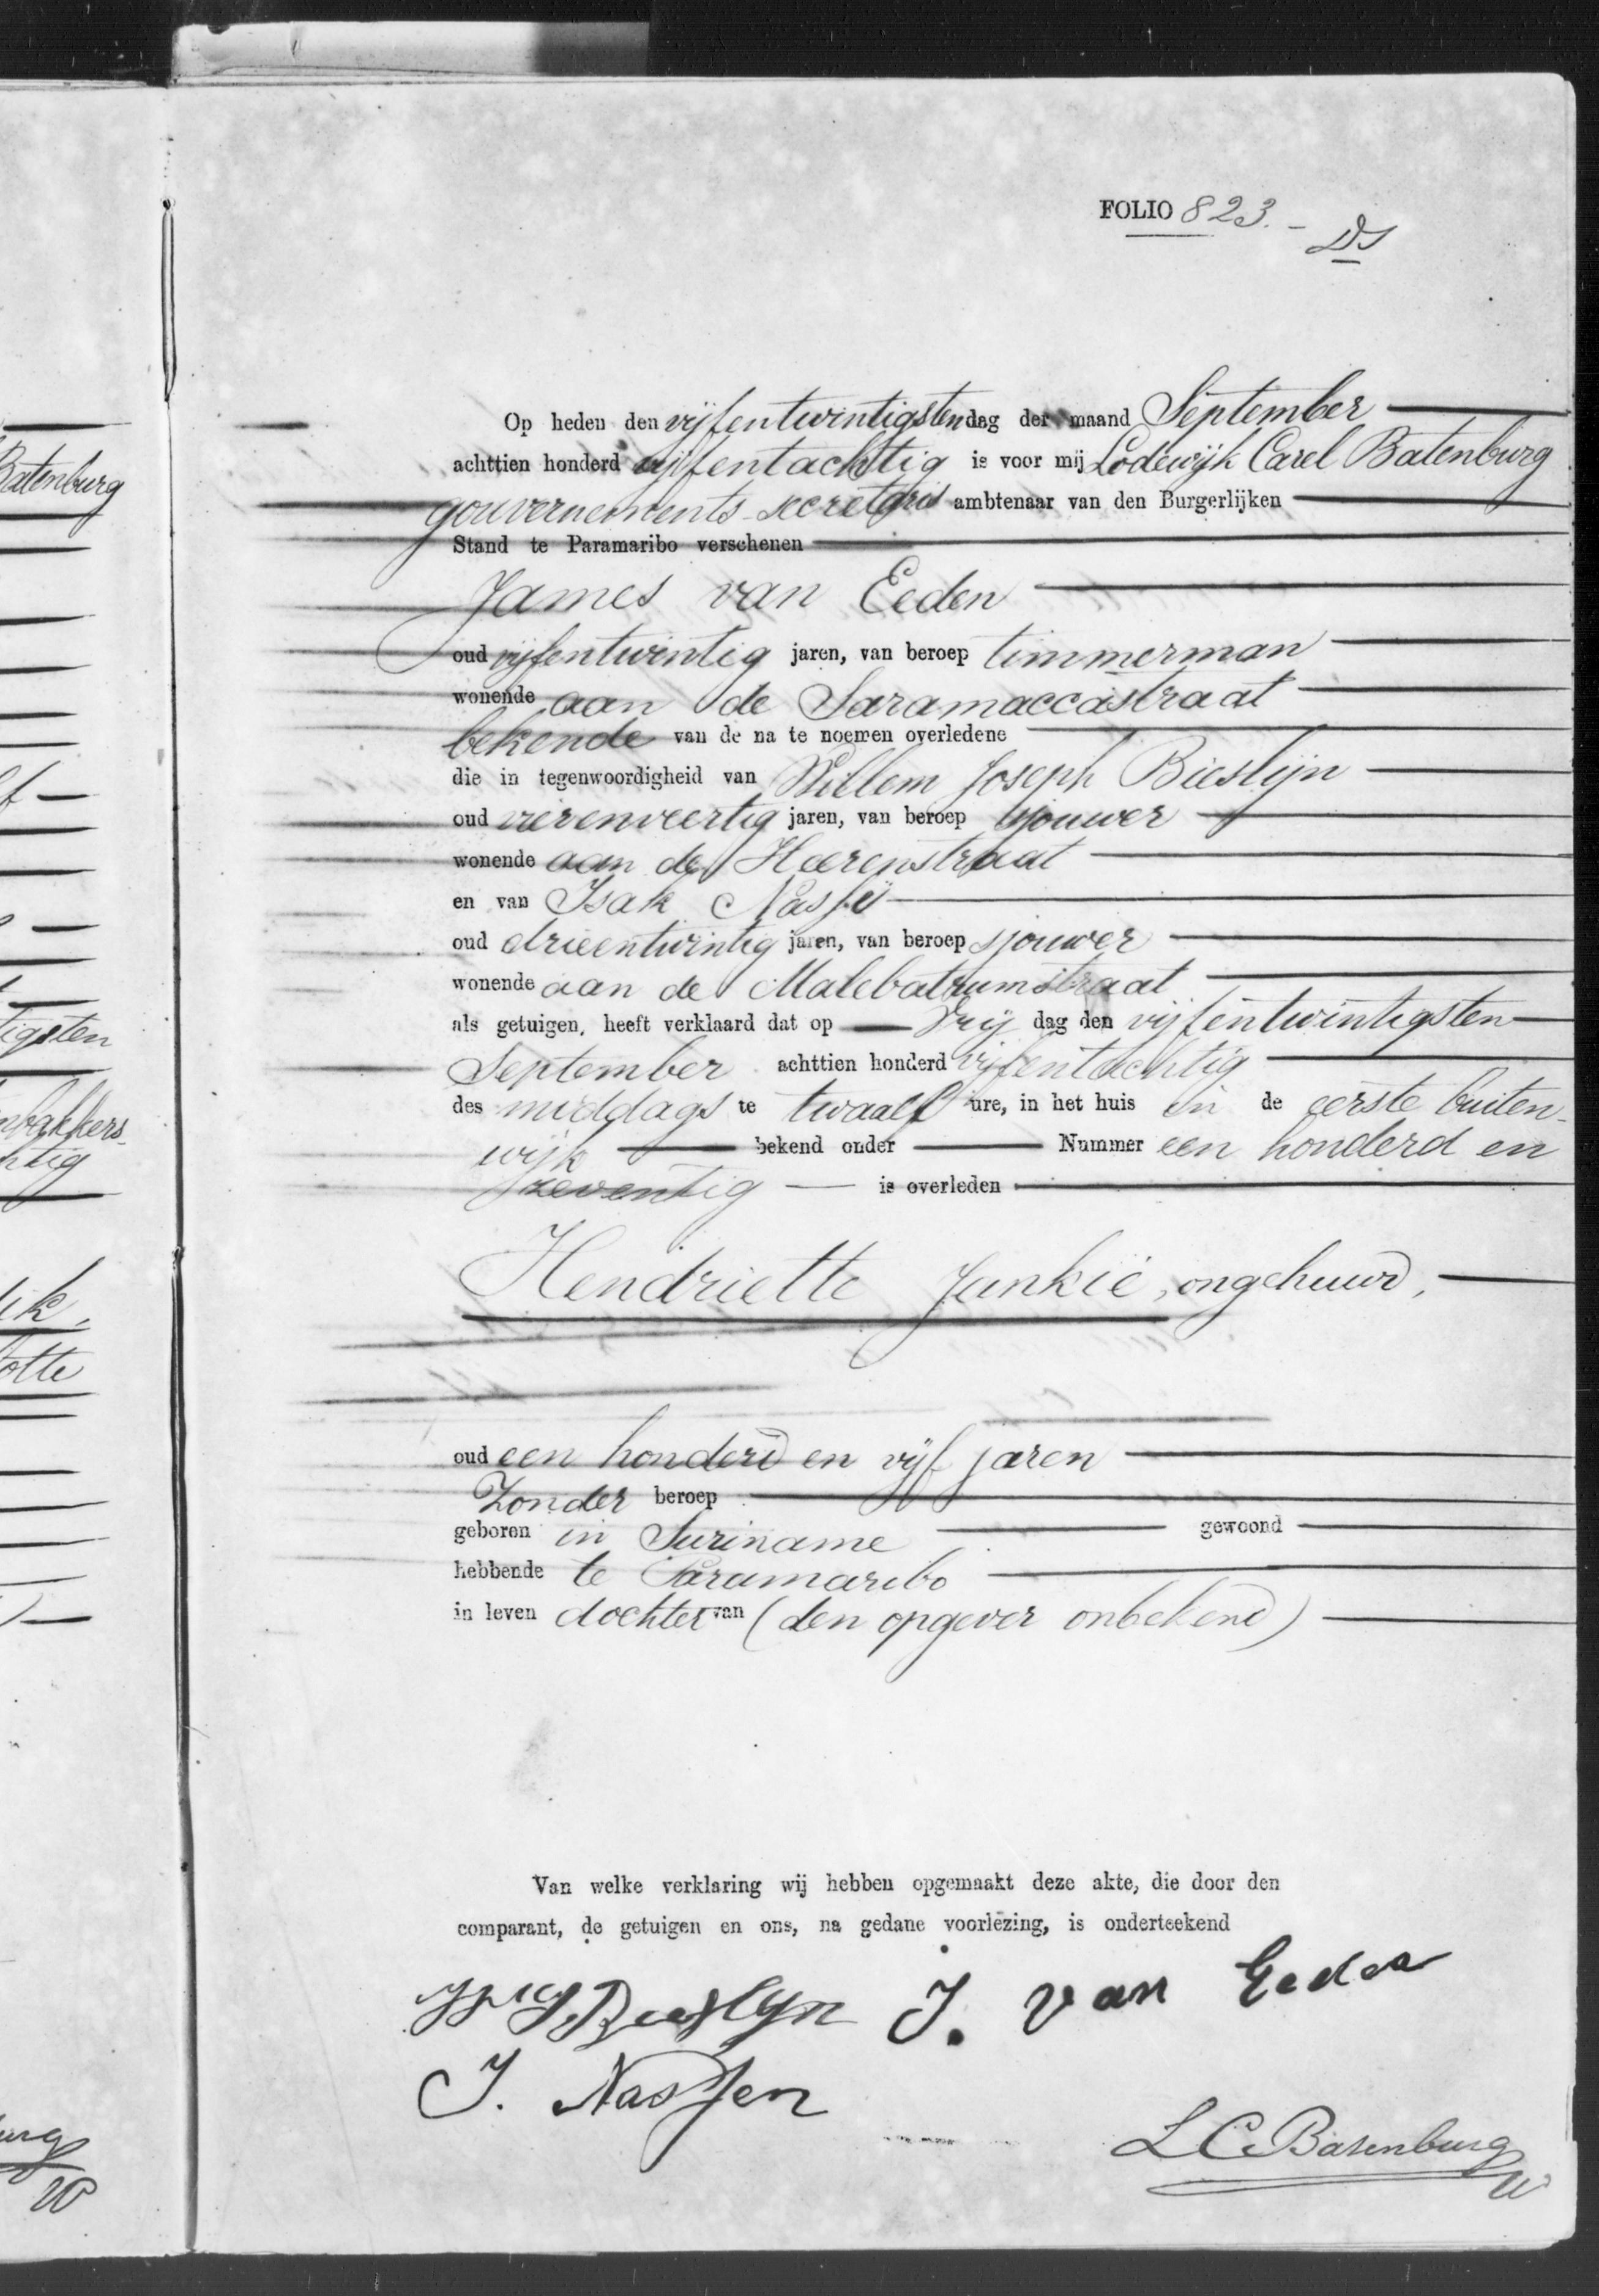 FOLIO 823. -
DS
Op heden den vijfentwintigsten dag der maand September
achttien honderd vijfentachtig is voor mij Lodewijk Carel Batenburg
gouvernements-secretaris ambtenaar van den Burgerlijken
Stand te Paramaribo verschenen
James van Eeden
oud vijfentwintig jaren, van beroep timmerman
wonende aan de Saramaccastraat
bekende van de na te noemen overledene
die in tegenwoordigheid van Willem Joseph Bieslijn
oud vierenveertig jaren, van beroep sjouwer
wonende aan de Heerenstraat
en van Isak
oud drieentwintig jaren, van beroep sjouwer
wonende aan de Malebatrumstraat
als getuigen, heeft verklaard dat op Vrij dag den vijfentwintigsten
September achttien honderd vijfentachtig
des middags te twaalf ure, in het huis in de eerste buiten-
wijk bekend onder Nummer een honderd en
zeventig is overleden
Hendriette Jankie, ongehuwd,
oud een honderd en vijf jaren
Zonder beroep
geboren in Suriname gewoond
hebbende te Paramaribo
in leven dochter van (den opgever onbekend)
Van welke verklaring wij hebben opgemaakt deze akte, die door den
comparant, de getuigen en ons, na gedane voorlezing, is onderteekend
Bieslyn J. van Eeden
J. Nassen
L C Batenburg
Batenburg
tigsten
bakkers
htig
ik,
otte
urg